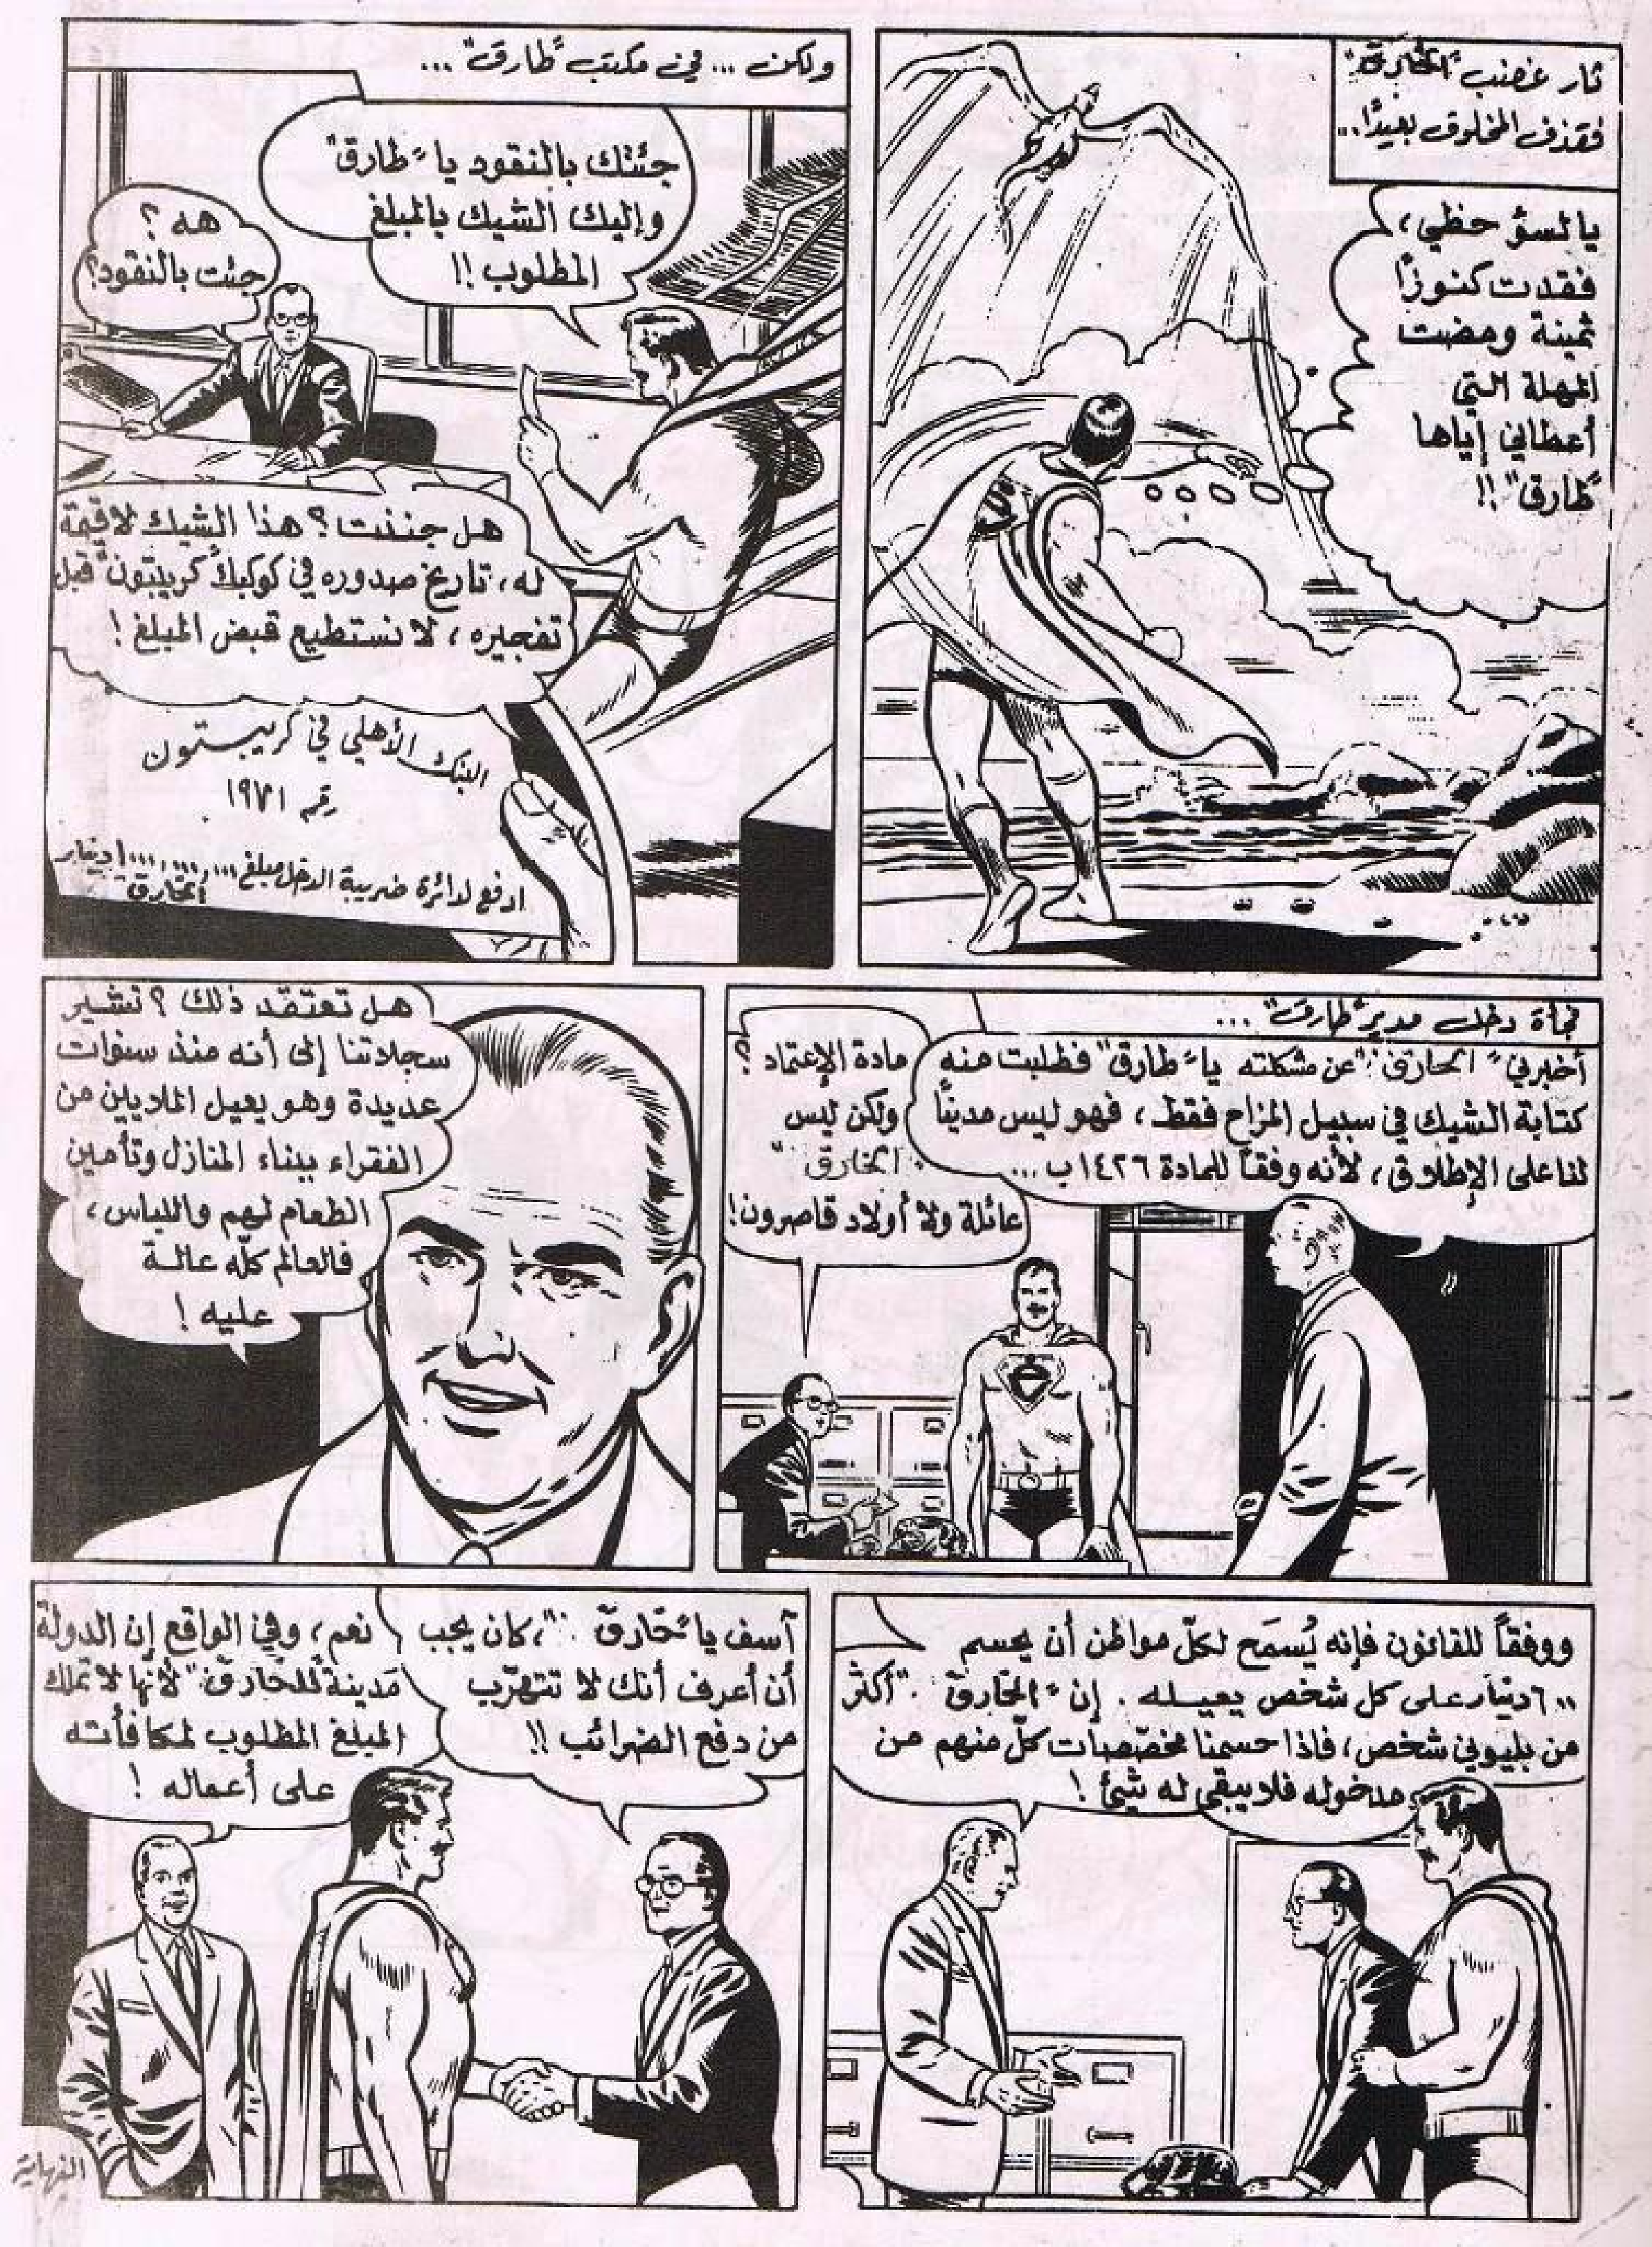 ثار غضب "الخارق"
فقذف المخلوق بعيدًا..
يا لسؤ حظي،
فقدت كنوزًا
ثمينة ومضت
المهلة التي
أعطاني إياها
"طارق"!!
ولكن ... في مكتب "طارق"...
جئتك بالنقود يا "طارق"
وإليك الشيك بالمبلغ
المطلوب!!
هه؟
جئت بالنقود؟
هل جننت؟ هذا الشيك لا قيمة
له، تاريخ صدوره في كوكب "كريبتون" قبل
تفجيره، لا نستطيع قبض المبلغ!
البنك الأهلي في كريبستون
رقم ١٩٧١
ادفع لدائرة ضريبة الدخل مبلغ دينار
الخارق
فجأة دخل مدير "طارق"...
أخبرني "الخارق" عن مشكلته يا "طارق" فطلبت منه
كتابة الشيك في سبيل المزاح فقط، فهو ليس مدينًا
لنا على الإطلاق، لأنه وفقًا للمادة ١٤٢٦ ب...
مادة الإعتماد؟
ولكن ليس
"الخارق"
عائلة ولا أولاد قاصرون!
هل تعتقد ذلك؟ تشير
سجلاتنا إلى أنه منذ سنوات
عديدة وهو يعيل الملايين من
الفقراء ببناء المنازل وتأمين
الطعام لهم واللباس،
فالعالم كلّه عالة
عليه!
ووفقًا للقانون فإنه يُسمَح لكلّ مواطن أن يحسم
٦٠٠ دينار على كل شخص يعيله. إن "الخارق" أكثر
من بليوني شخص، فاذا حسمنا مخصّصات كلّ منهم من
مدخوله فلا يبقى له شئ!
آسف يا "خارق"، كان يجب
أن أعرف أنك لا تتهرّب
من دفع الضرائب!!
نعم، وفي الواقع إن الدولة
مَدينة "للخارق" لأنها لا تملك
المبلغ المطلوب لمكافأته
على أعماله!
النهاية